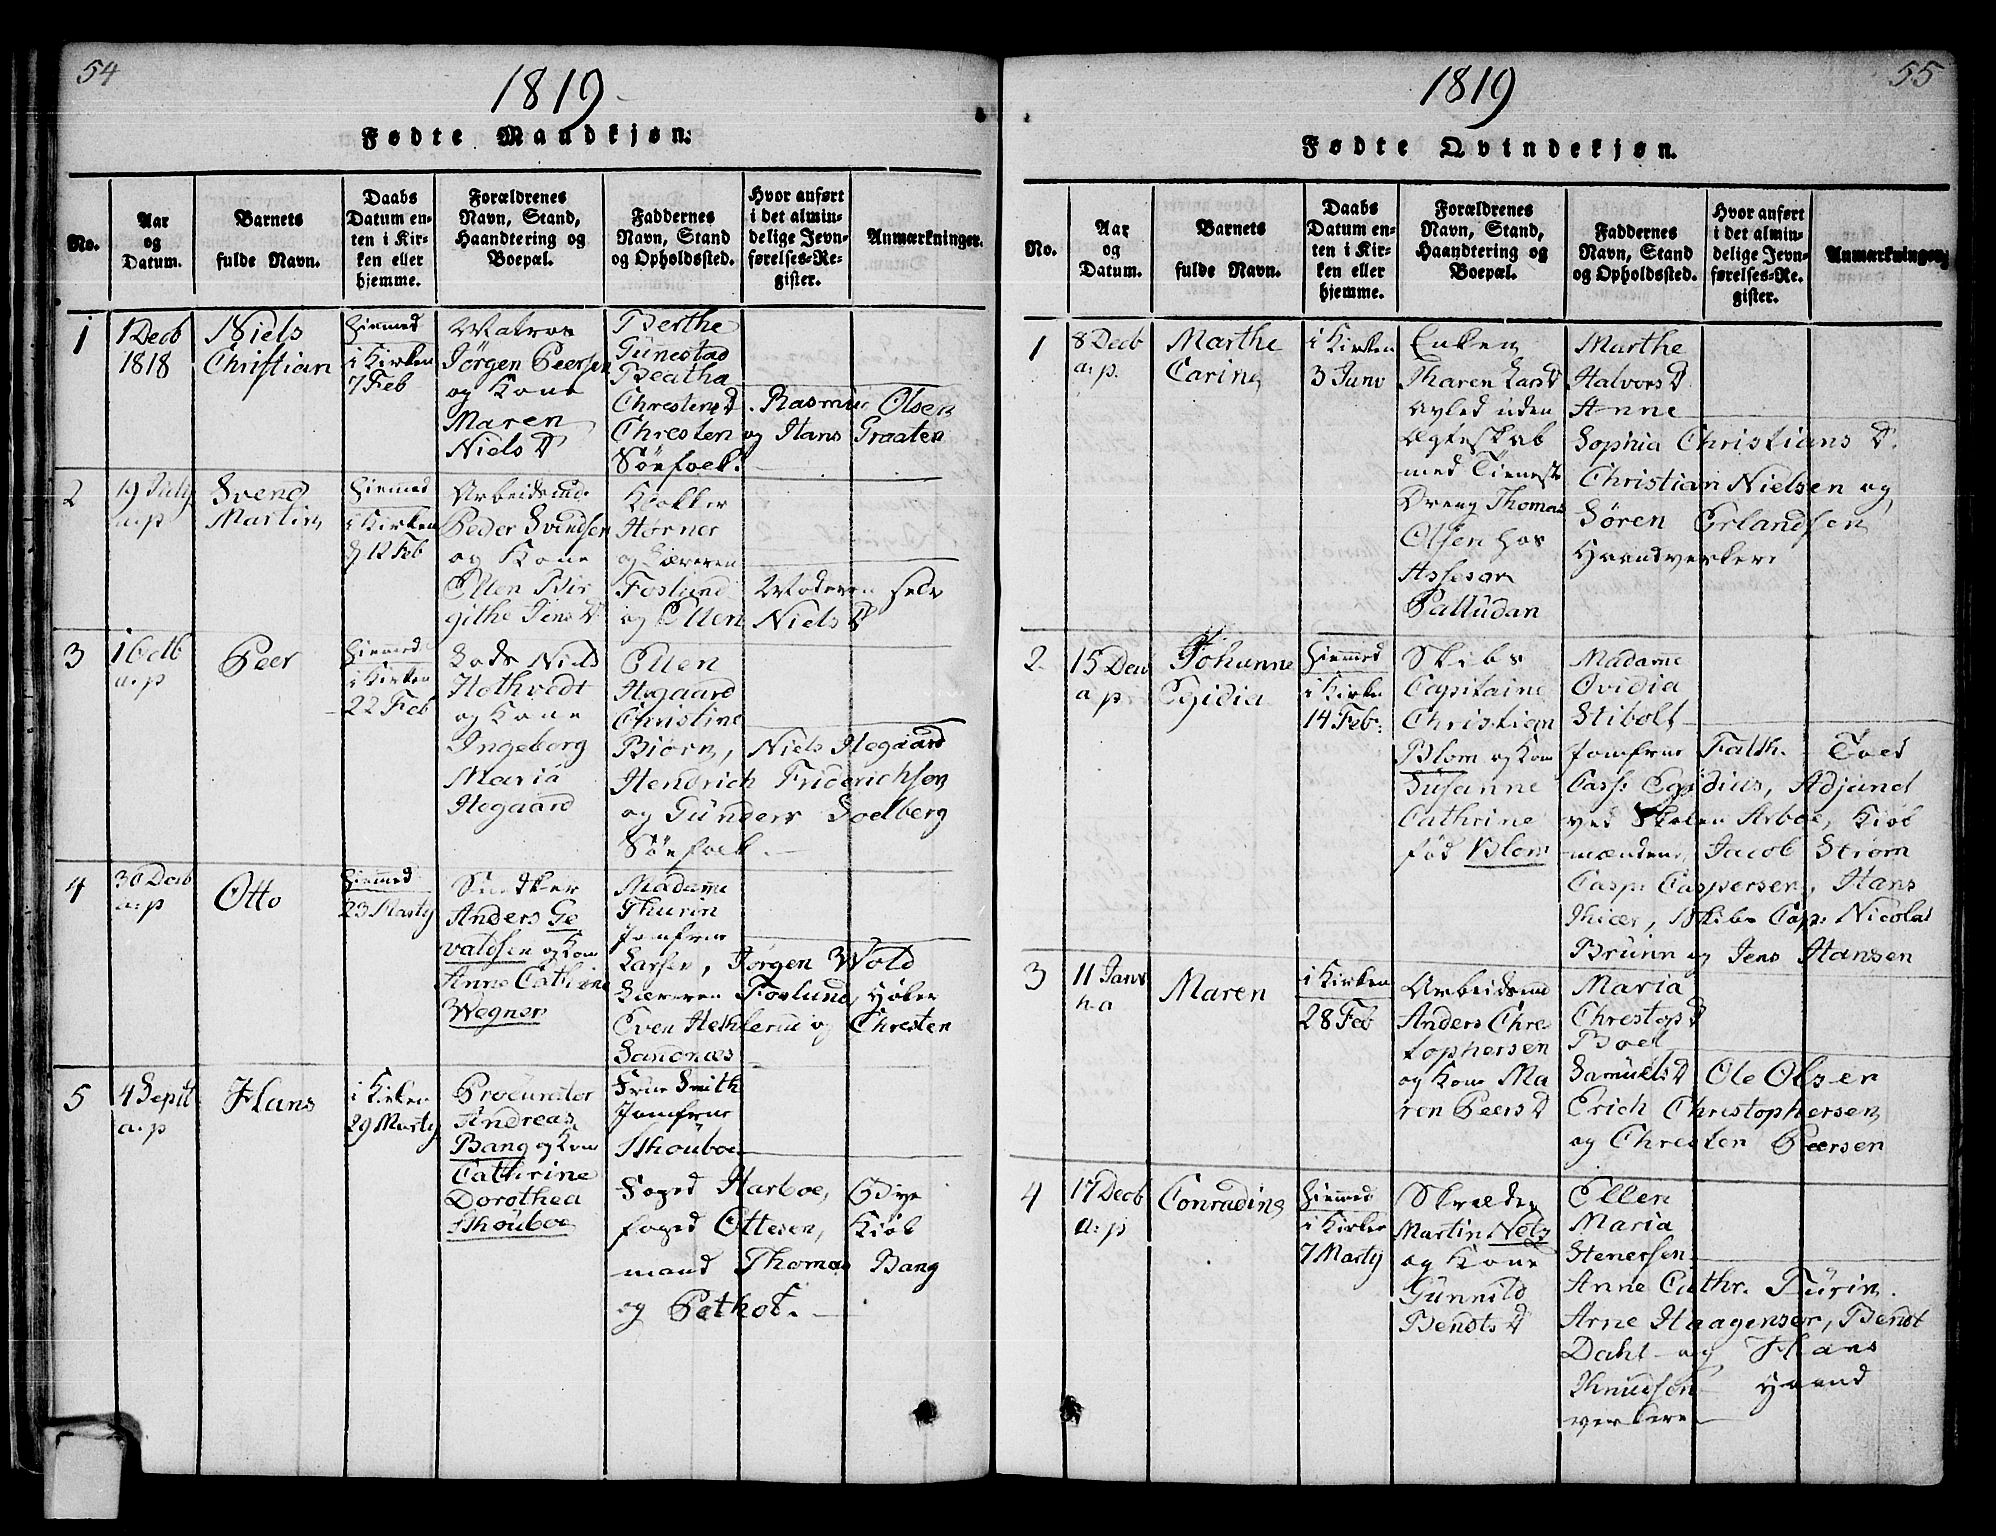 54
1819
Fødte Mandkjøn.
No.
Aar
og
Datum.
Barnets
fulde Navn.
Daabs
Datum en-
ten i Kir-
ken eller
hjemme.
Forældrenes
Navn, Stand,
Haandtering og
Boepæl.
Faddernes
Navn, Stand
og Opholdssted.
Hvor anført
i det almin-
delige Jevn-
førelses-Re-
gister.
Anmærkninger.
1
1 Decb
1818
Niels
Christian
Hiemmed
i Kirken
7 Feb
Matros
Jørgen Peersen
og Kone
Maren
Niels D
Berthe
Gunestad
Beatha
Christens D
Rasmus Olsen
Chresten og Hans Graaten
Søefolk.
2
19 July
a.p
Svend
Martin
Hiemmed
i Kirken
12 Feb
Arbeidsmd.
Peder Svendsen
og Kone
Ellen Bir
githe Jens D
Klokker
Horner
og Læreren
Foslund
Moderen selv
og Ellen Niels D
3
1 Octb
a.p
Peer
Hiemmed
i Kirken
22 Feb
Lods Niels
Hothvedt
og Kone
Ingeborg
Maria
Hegaard
Ellen
Hegaard
Christine
Biørn, Niels Hegaard
Hendrich Friderichsen
og Gunder Soelberg
Søefolk.
4
30 Decb
a.p
Otto
Hiemmed
23 Marty
Snedker
Anders Ge
valdsen og Kone
Anne Cathrine
Wegner
Madame
Thurin
Jomfrue
Larsen, Jørgen Wold
Læreren Foslund,
Even og Chresten
Sandnæs
5
4 Septb
a.p
Hans
i Kirken
29 Marty
Procurator
Andreas
Bang og Kone
Cathrine
Dorothea
Skouboe
Frue Smith
Jomfrue
Skouboe
Foged Harboe,
foged Ottesen, Kiøb
mand Thomas Bang
og Pethof.
55
1819
Fødte Qvindekjøn.
No.
Aar
og
Datum.
Barnets
fulde Navn.
Daabs
Datum en-
ten i Kir-
ken eller
hjemme.
Forældrenes
Navn, Stand,
Haandtering og
Boepæl.
Faddernes
Navn, Stand
og Opholdssted.
Hvor anført
i det almin-
delige Jevn-
førelses-Re-
gister.
Anmærkninger.
1
8 Decb
a.p.
Marthe
Carine
i Kirken
3 Janv
Enken
Karen Lars D
avled uden
Ægteskab
med Tieneste
Dreng Thomas
Olsen hos
Assesor
Palludan
Marthe
Halvors D
Anne
Sophia Christians D.
Christian Nielsen og
Søren Erlandsen
Haandverkere
2
15 Decb
a p
Johanne
Egidia
Hiemmed
i Kirken
14 Feb.
Skibs
Capitaine
Christian
Blom og Kone
Susanne
Cathrine
fød Blom
Madame
Ovidia
Stibolt
Jomfrue Falch. Toed
Cass: Egidius, Adjunct
ved Skolen Arboe, Kiøb
mændene Jacob Strøm
Casp: Caspersen, Hans
Kiær, Skibs Cap: Nicolai
Bruun og Jens Hansen
3
11 Janv
h.a
Maren
i Kirken
28 Feb
Arbeidsmd
Anders Chris
tophersen
og Kone Ma
ren Peers D
Maria
Christops D
Boel
Samuels D Ole Olsen
Erich Christophersen
og Chresten Peersen
4
17 Decb
a.p
Conradine
Hiemmed
i Kirken
7 Marty
Skræder
Martin Netz
og Kone
Gunnild
Bendts D
Ellen
Maria
Stenersen
Anne Cathr. Turin.
Arne Haagensen, Bendt
Dahl og Hans
Knudsen Haand
verkere